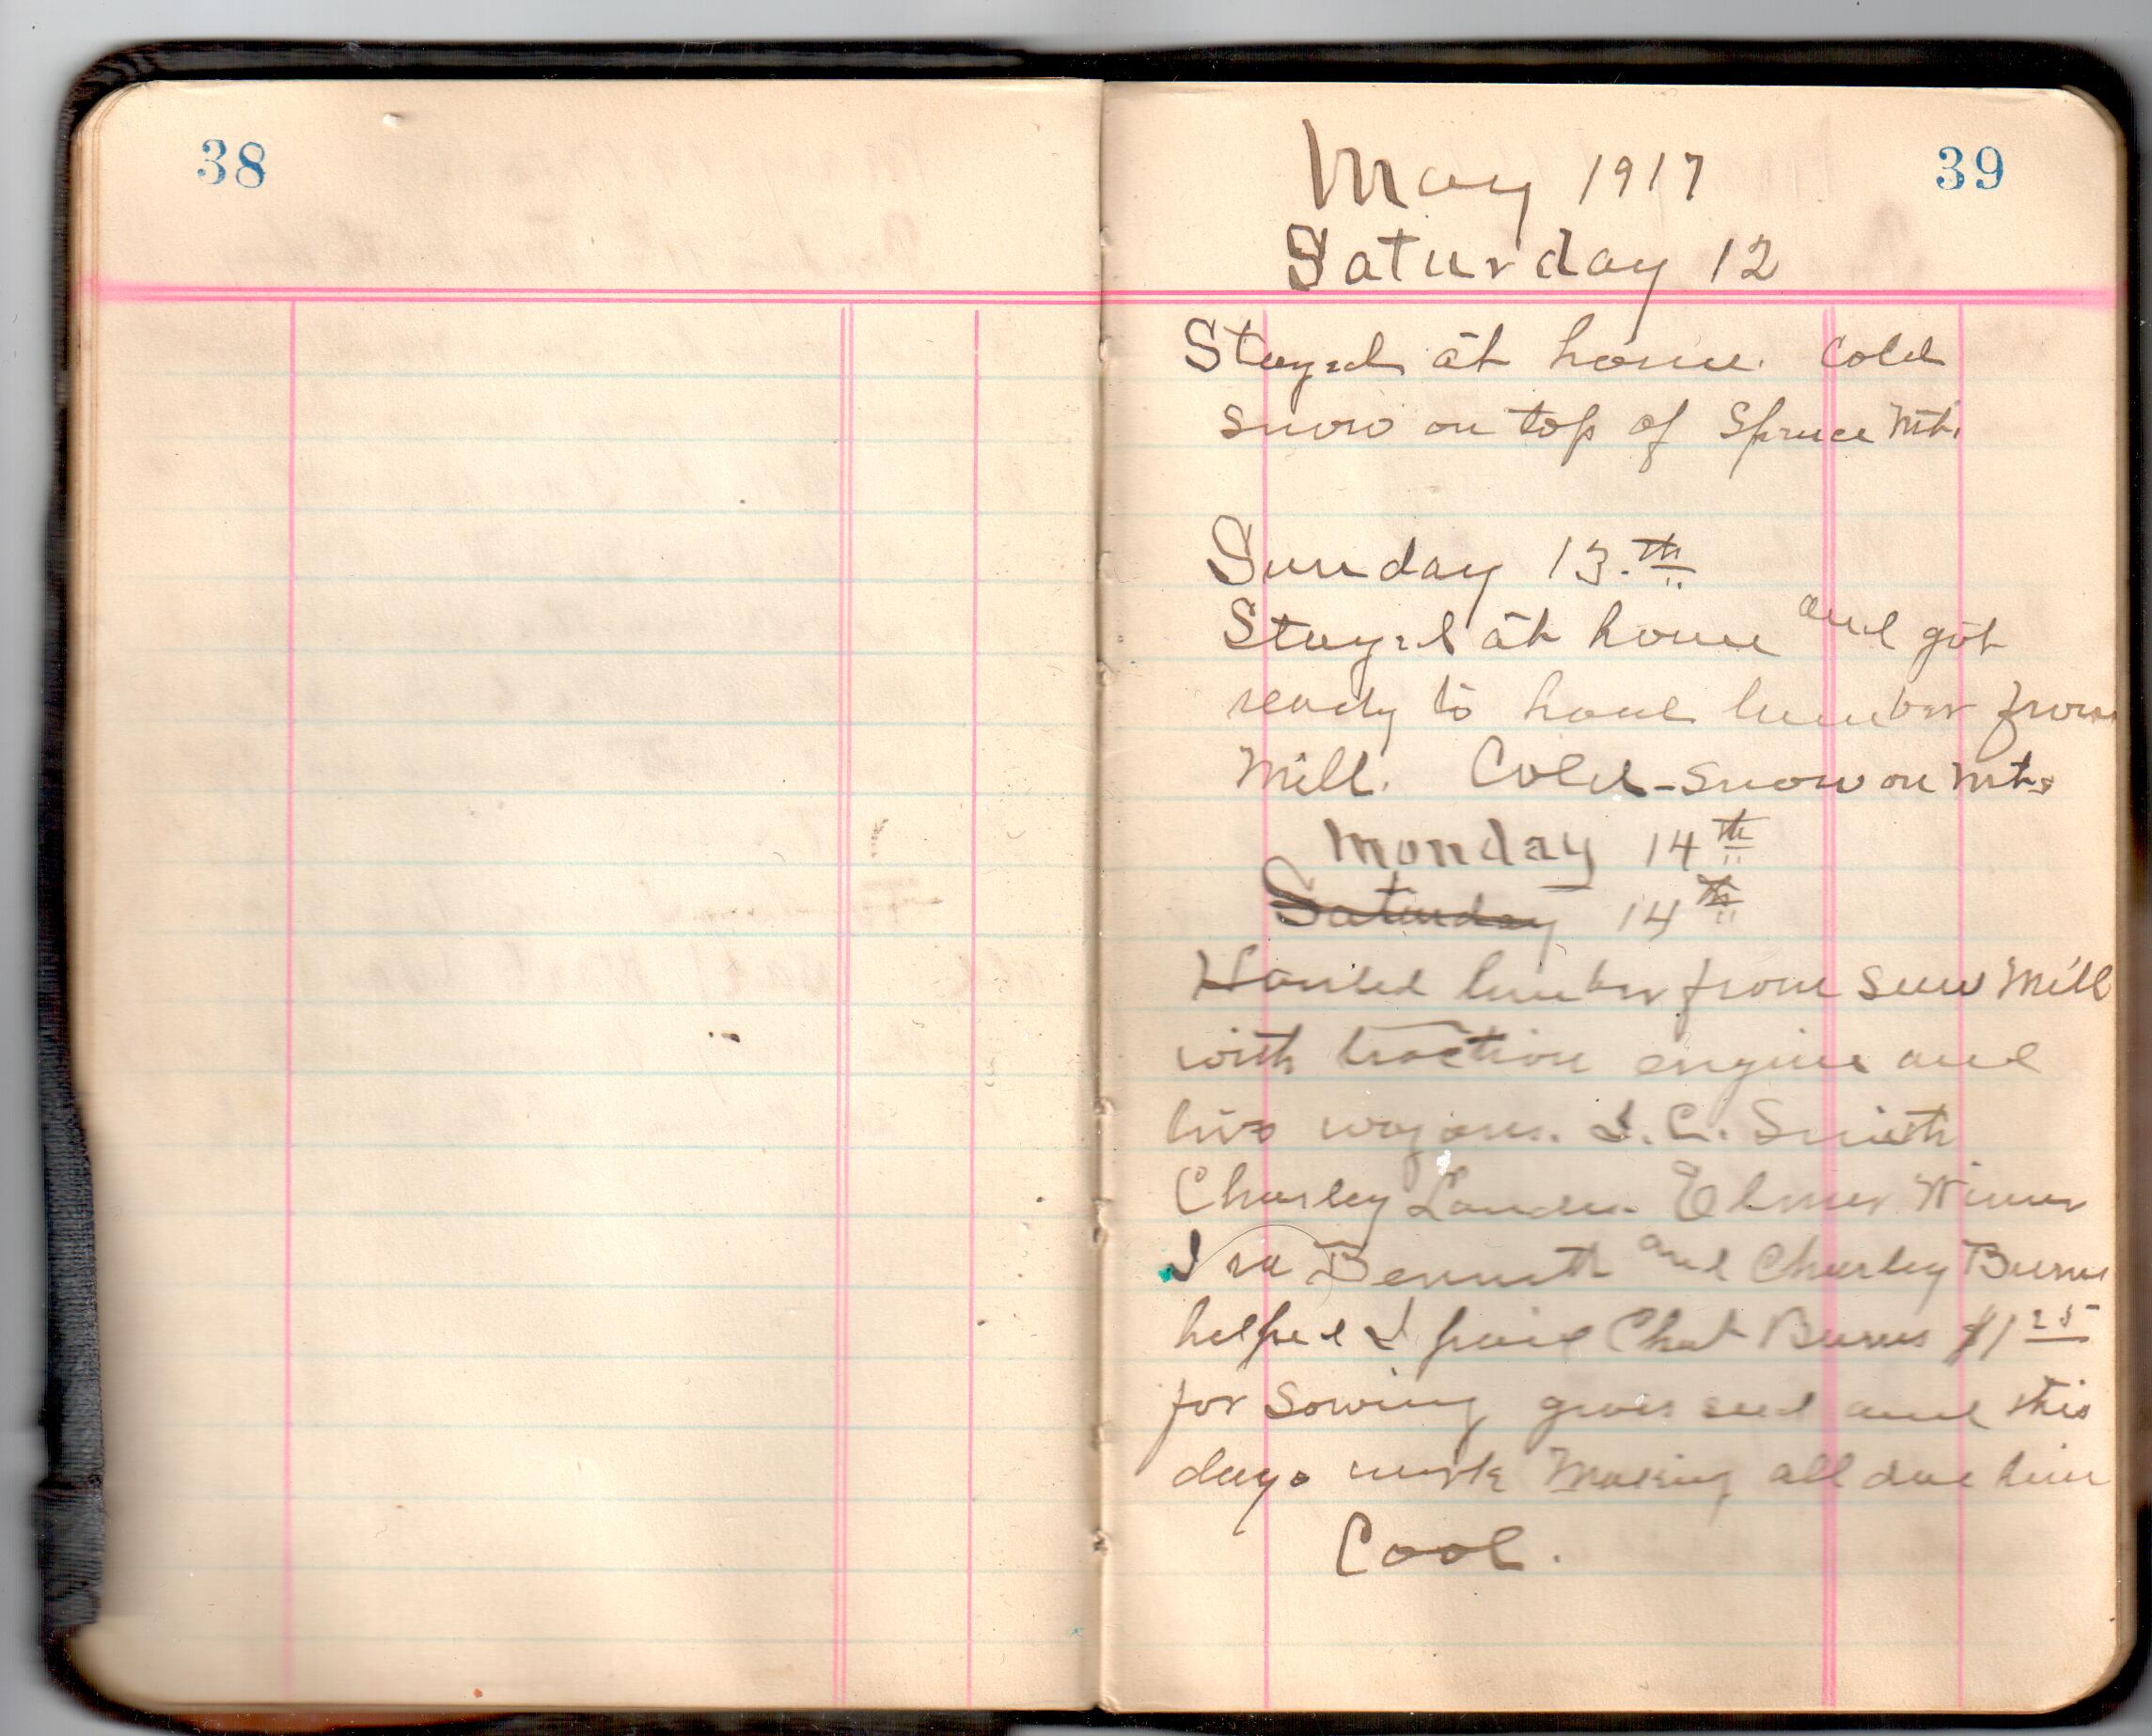 38
39
May 1917
Saturday 12
Stayed at home. Cold
snow on top of Spruce Mt.
Sunday 13.th
Stayed at home and got
ready to haul lumber from
Mill. Cold - snow on Mts
Monday 14th
Saturday 14th
Hauled lumber from saw Mill
with traction engine and
two wagons. I. C. Smith
Charley Elmer
Ira Bennett and Charley Burns
helped I paid Chat Burns $1 25
for sowing grass seed and this
days work Making all due him
Cool.